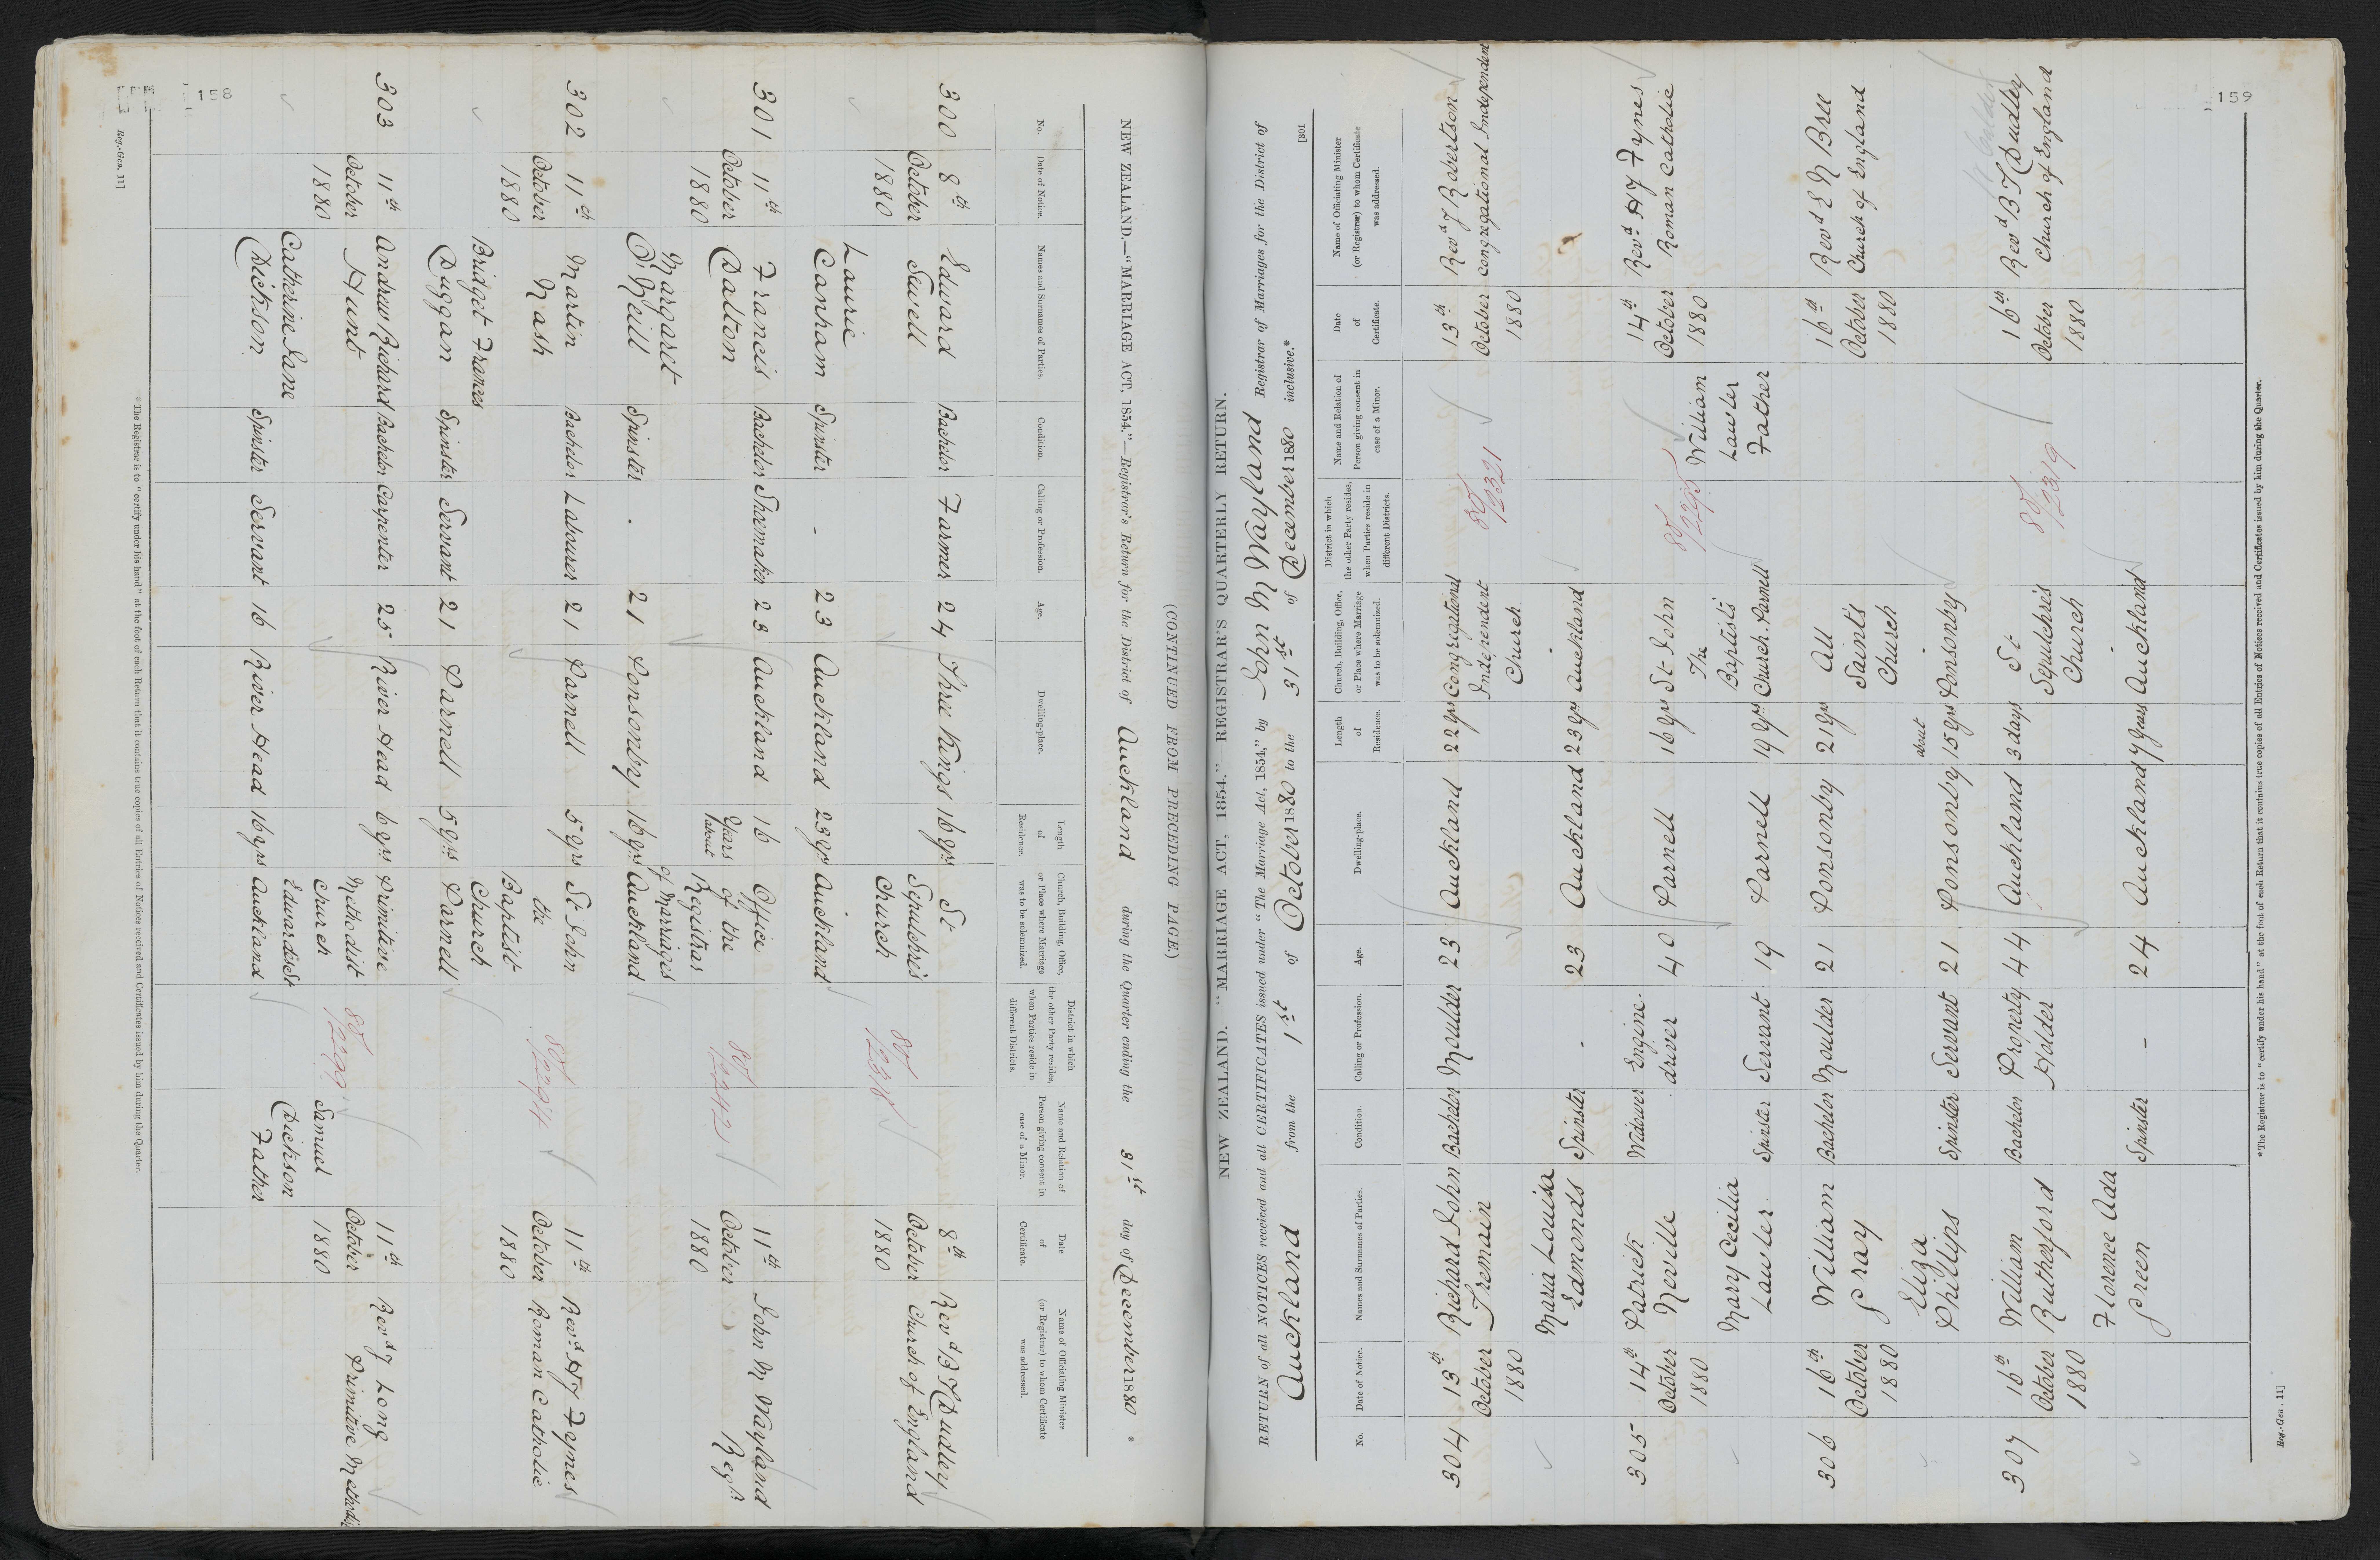 158
NEW ZEALAND.—"MARRIAGE ACT, 1854."—Registrar's Return for the District of Auckland during the Quarter ending the 31st day of December 1880 *
No.
Date of Notice.
Names and Surnames of Parties.
Condition.
Calling or Profession.
Age.
Dwelling-place.
Length of Residence.
Church, Building, Office, or Place where Marriage was to be solemnized.
District in which the other Party resides, when Parties reside in different Districts.
Name and Relation of Person giving consent in case of a Minor.
Date of Certificate.
Name of Officiating Minister (or Registrar) to whom Certificate was addressed.
300 8th Edward Bachelor Farmer 24 Three Kings 16 yrs St 8th Revd B T Dudley
October Sewell Sepulchre's October Church of England
1880 Church 80/2318 1880
Laurie
Canham Spinster - 23 Auckland 23 yrs Auckland
301 11th Francis Bachelor Shoemaker 23 Auckland 16 Office 11th John M Wayland
October Dalton Years of the 80/2242 October Regr
1880 about Registrar 1880
Margaret of Marriages
O'Neill Spinster - 21 Ponsonby 16 yrs Auckland
302 11th Martin Bachelor Labourer 21 Parnell 5 yrs St John 11th Revd H J Fynes
October Nash the 80/2294 October Roman Catholic
1880 Baptist 1880
Bridget Frances Church
Duggan Spinster Servant 21 Parnell 5 yrs Parnell
303 11th Andrew Richard Bachelor Carpenter 25 River Head 6 yrs Primitive 11th Revd J Long
October Hunt Methodist 80/2299 October Primitive Methodist
1880 Church Samuel 1880
Catherine Jane Edwardes St Dickson
Dickson Spinster Servant 16 River Head 16 yrs Auckland Father
* The Registrar is to "certify under his hand" at the foot of each Return that it contains true copies of all Entries of Notices received and Certificates issued by him during the Quarter.
Reg.-Gen. 11]
(CONTINUED FROM PRECEDING PAGE.)
159
[301
NEW ZEALAND.—"MARRIAGE ACT, 1854."—REGISTRAR'S QUARTERLY RETURN.
RETURN of all NOTICES received and all CERTIFICATES issued under "The Marriage Act, 1854," by John M Wayland Registrar of Marriages for the District of
Auckland from the 1st of October 1880 to the 31st of December 1880 inclusive.*
No.
Date of Notice.
Names and Surnames of Parties.
Condition.
Calling or Profession.
Age.
Dwelling-place.
Length of Residence.
Church, Building, Office, or Place where Marriage was to be solemnized.
District in which the other Party resides, when Parties reside in different Districts.
Name and Relation of Person giving consent in case of a Minor.
Date of Certificate.
Name of Officiating Minister (or Registrar) to whom Certificate was addressed.
304 13th Richard John Bachelor Moulder 23 Auckland 22 yrs Congregational 13th Revd J Robertson
October Tremain Independent 80/2321 October Congregational Independent
1880 Church 1880
Maria Louisa
Edmonds Spinster - 23 Auckland 23 yrs Auckland
305 14th Patrick Widower Engine- 40 Parnell 16 yrs St John 14th Revd H J Fynes
October Neville driver The 80/2295 October Roman Catholic
1880 William 1880
Mary Cecilia Baptist's Lawler
Lawler Spinster Servant 19 Parnell 19 yrs Church. Parnell Father
306 16th William Bachelor Moulder 21 Ponsonby 21 yrs All 16th Revd E N Bree
October Gray Saints October Church of England
1880 Church 1880
Eliza about
Phillips Spinster Servant 21 Ponsonby 15 yrs Ponsonby
307 16th William Bachelor Property 44 Auckland 3 days St 16th Revd B T Dudley
October Rutherford Holder Sepulchre's 80/2319 October Church of England
1880 Church 1880
Florence Ada
Green Spinster - 24 Auckland 7 years Auckland
* The Registrar is to "certify under his hand" at the foot of each Return that it contains true copies of all Entries of Notices received and Certificates issued by him during the Quarter.
Reg.-Gen. 11]